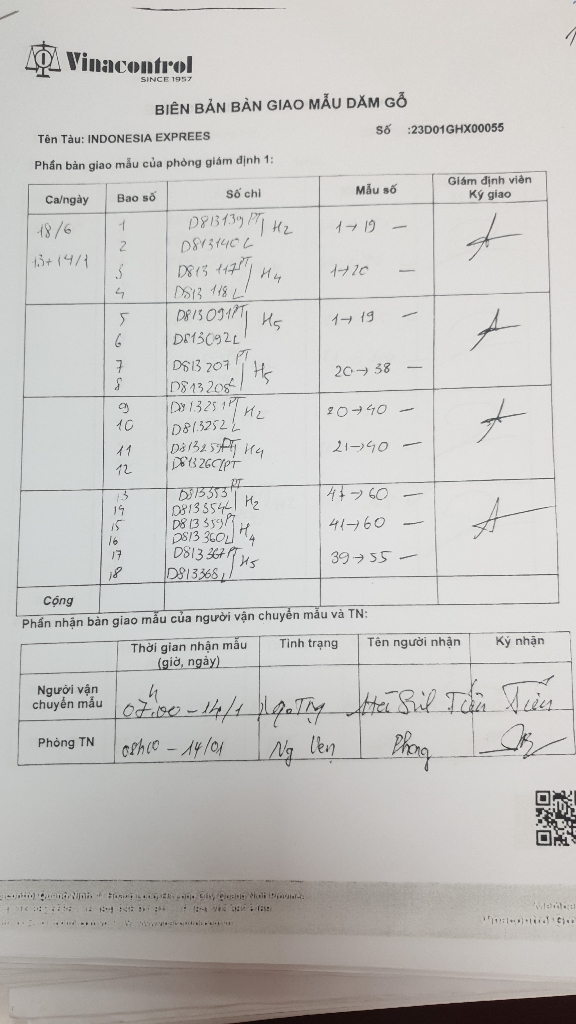 Vinacontrol
SINCE 1957
BIÊN BẢN BÀN GIAO MẪU DĂM GỖ
Tên Tàu: INDONESIA EXPREES Số :23D01GHX00055
Phần bàn giao mẫu của phòng giám định 1:
Ca/ngày Bao số Số chì Mẫu số Giám định viên Ký giao
18/6 1 D813139 PT H2 1→19 —
2 D813140 L
13+14/1 3 D813 117 PT H4 1→20 —
4 D813 118 L
5 D813091 PT H5 1→19 —
6 D813092 L
7 D813207 PT H5 20→38 —
8 D813208 L
9 D813251 PT H2 20→40 —
10 D813252 L
11 D813259 PT H4 21→40 —
12 D813260 PT
13 D813353 PT H2 41→60 —
14 D813354 L
15 D813359 PT H4 41→60 —
16 D813360 L
17 D813367 PT H5 39→55 —
18 D813368 L
Cộng
Phần nhận bàn giao mẫu của người vận chuyển mẫu và TN:
Thời gian nhận mẫu (giờ, ngày) Tình trạng Tên người nhận Ký nhận
Người vận chuyển mẫu 07h00 - 14/1 Tiến
Phòng TN 08h00 - 14/01 Ng Vẹn Phong